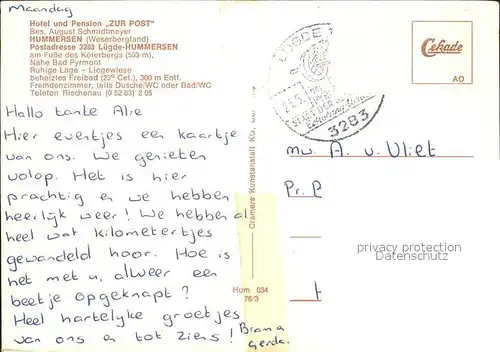 Maandag
Hotel und Pension „ZUR POST"
Bes. August Schmidtmeyer
HUMMERSEN (Weserbergland)
Postadresse 3283 Lügde-HUMMERSEN
am Fuße des Köterbergs (503 m),
Nähe Bad Pyrmont
Ruhige Lage - Liegewiese
beheiztes Freibad (23° Cel.), 300 m Entf.
Fremdenzimmer, teils Dusche/WC oder Bad/WC
Telefon Rischenau (0 52 83) 2 05
Hallo tante Alie
Hier eventjes een kaartje
van ons. We genieten
volop. Het is hier
prachtig en we hebben
heerlijk weer! We hebben al
heel wat kilometertjes
gewandeld hoor. Hoe is
het met u, alweer een
beetje opgeknapt?
Heel hartelyke groetjes
van ons en tot ziens!
Bram a
Gerda.
Hum 034
76/3
Cramers Kunstanstalt KG, Do
LÜGDE 1
3283
Cekade
AO
mw. A. v. Vliet
Pr. P
privacy protection
Datenschutz